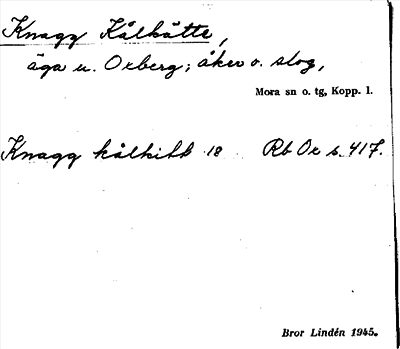 Knagg Kålhätte,
äga u. Oxberg; åker o. slog,
Mora sn o. tg, Kopp. l.
Knagg kålhitt 18 Rb Ox s. 417.
Bror Lindén 1945.